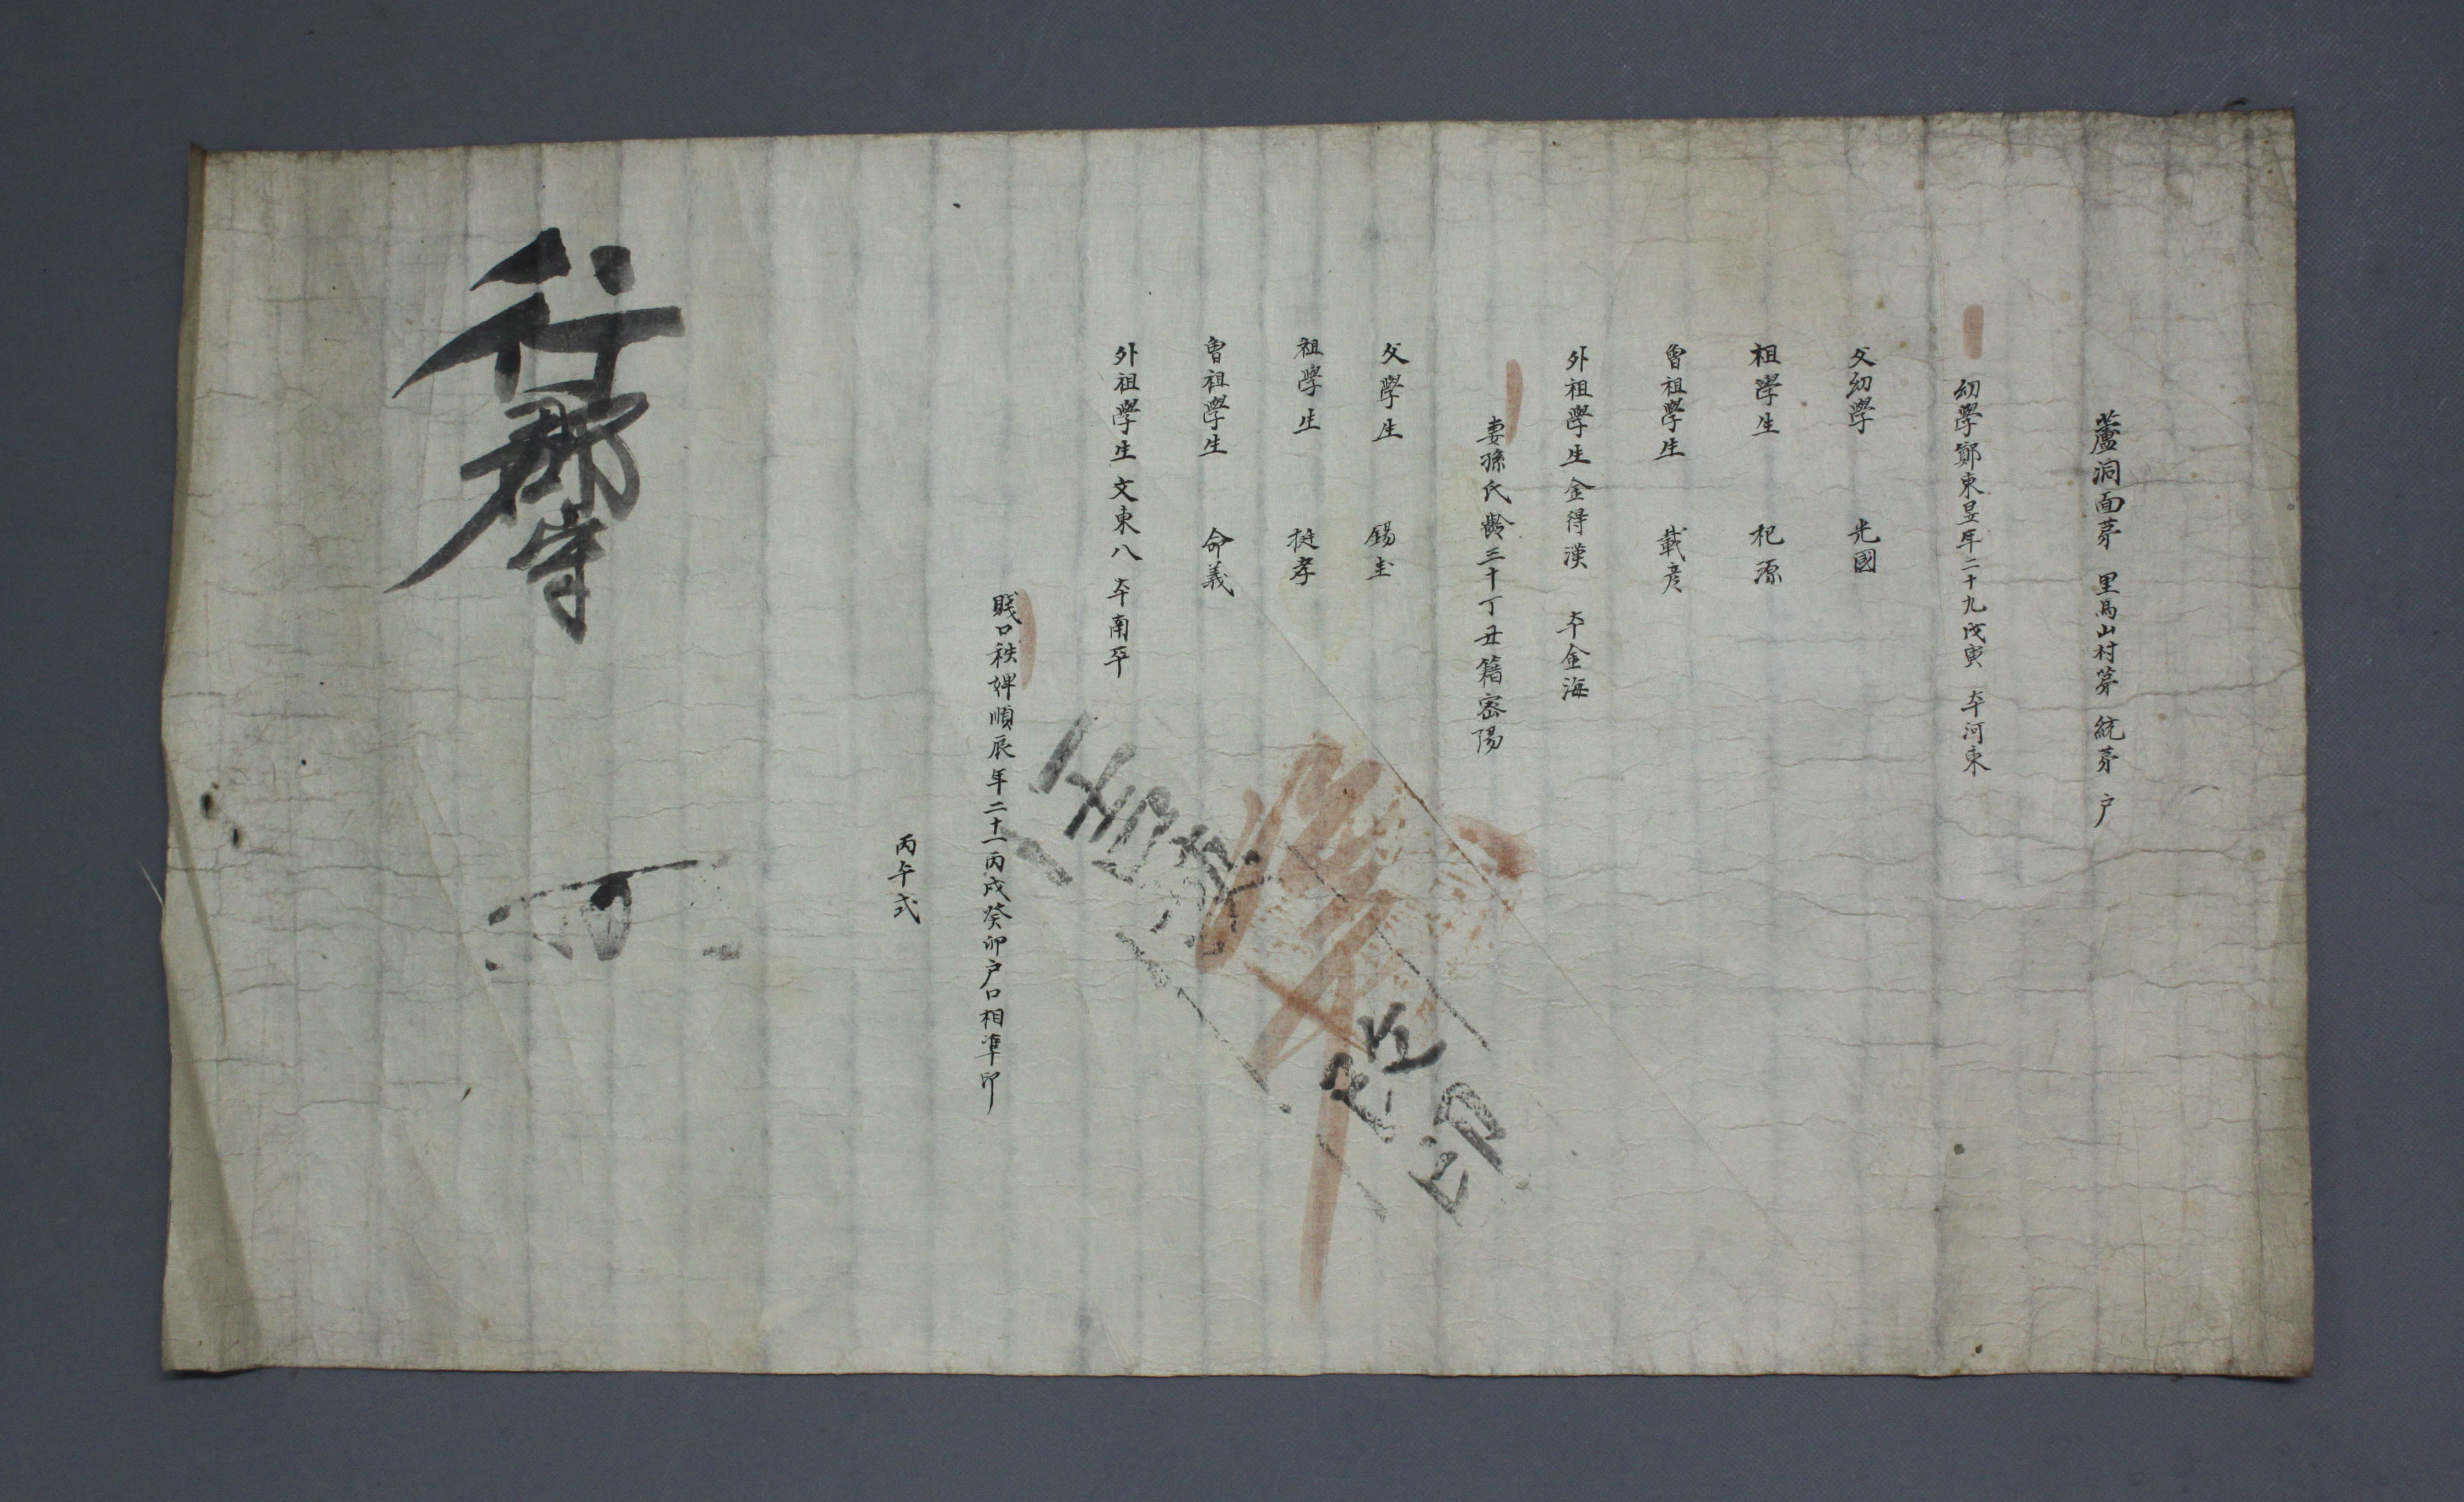 蘆洞面苐 里馬山村苐 統苐 户
幼學鄭東昱年二十九戊寅 本河東
父幼學 光國
祖學生 杞源
曾祖學生 載彦
外祖學生金得漢 本金海
妻孫氏齡三十丁丑籍密陽
父學生 錫圭
祖學生 挺孝
曾祖學生 命義
外祖學生文東八 本南平
賤口秩婢順辰年二十一丙戌癸卯户口相準印
丙午式
行郡守